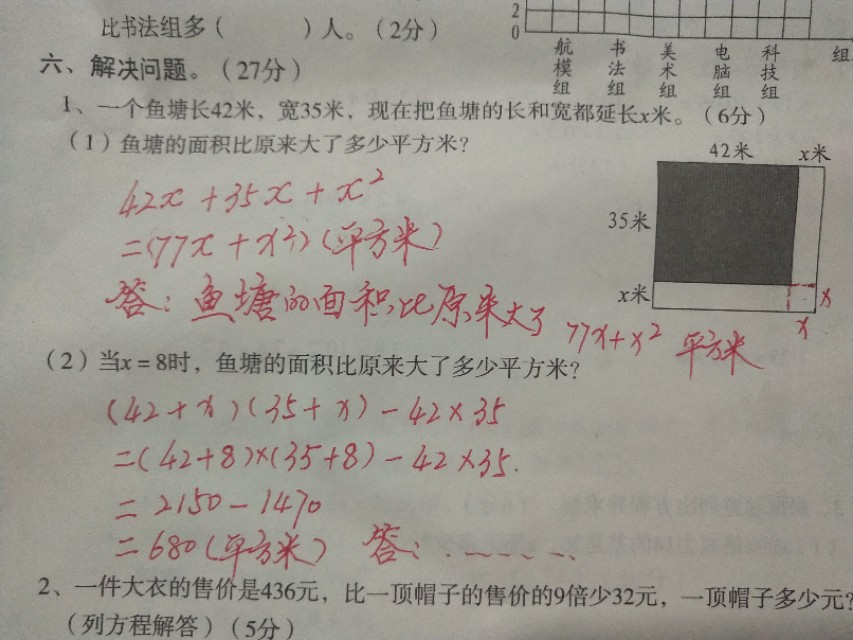 比书法组多（　　）人。（2分）
2
0
航模组 书法组 美术组 电脑组 科技组 组
六、解决问题。（27分）
1、一个鱼塘长42米，宽35米，现在把鱼塘的长和宽都延长x米。（6分）
（1）鱼塘的面积比原来大了多少平方米？
42米 x米
35米
x米
x
x
42x+35x+x²
=(77x+x²)(平方米)
答：鱼塘的面积比原来大了 77x+x² 平方米
（2）当x=8时，鱼塘的面积比原来大了多少平方米？
(42+x)(35+x)-42×35
=(42+8)×(35+8)-42×35.
=2150-1470
=680(平方米) 答：……
2、一件大衣的售价是436元，比一顶帽子的售价的9倍少32元，一顶帽子多少元？
（列方程解答）（5分）